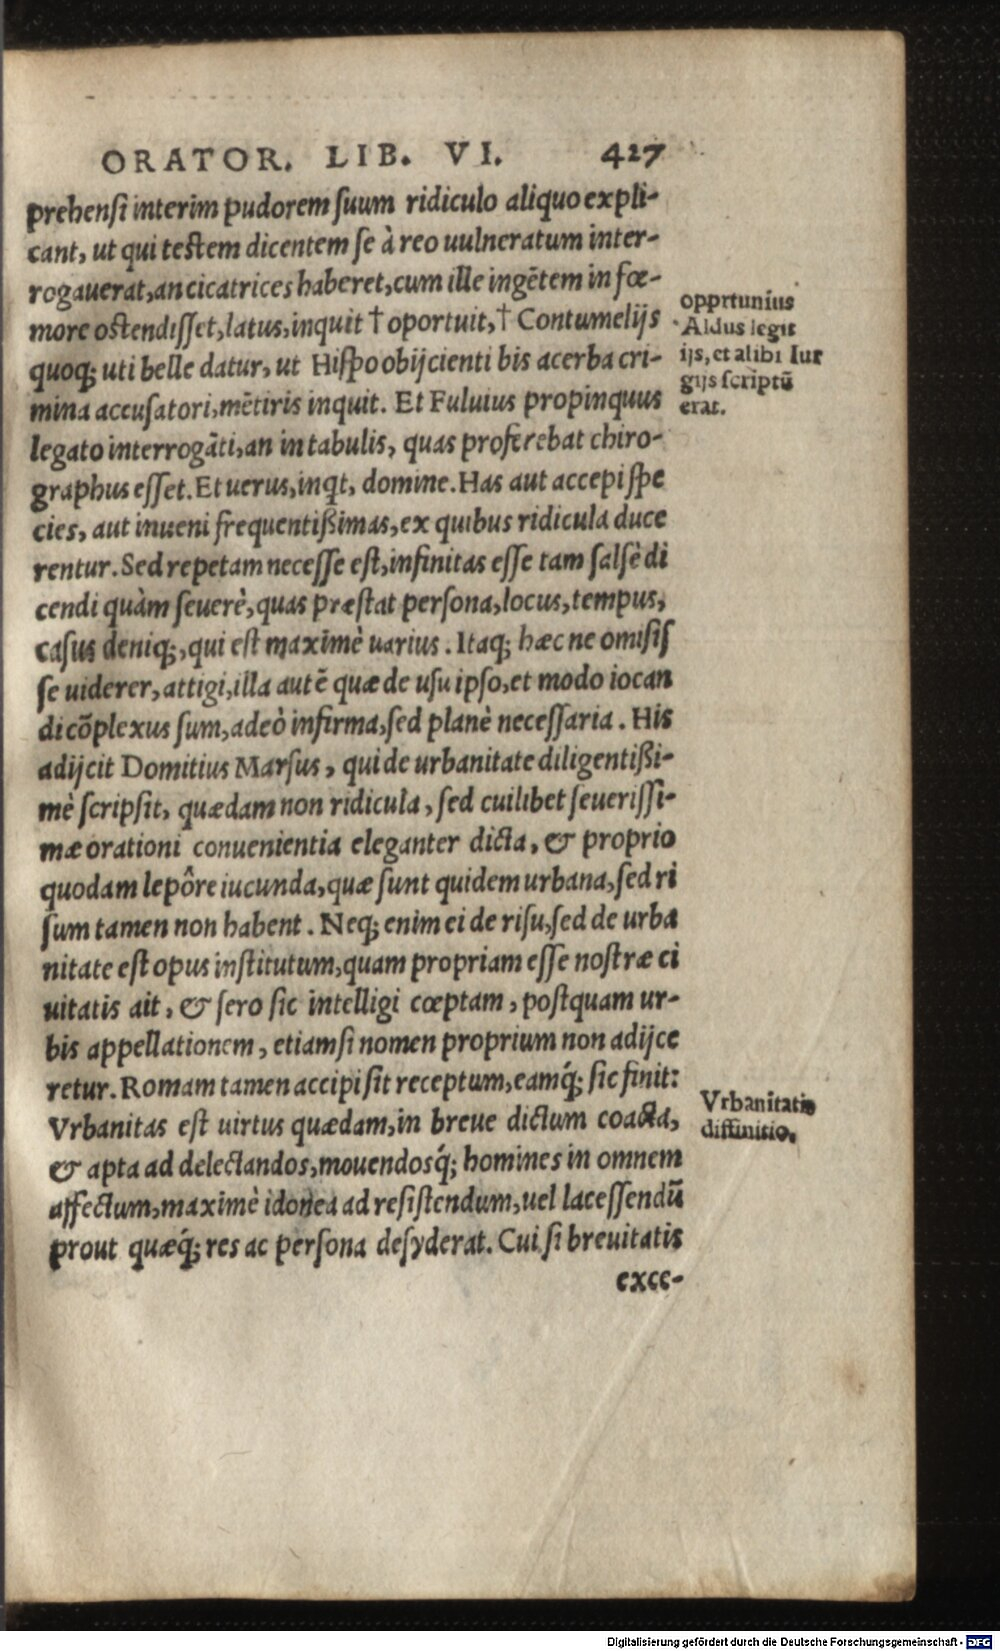 ORATOR. LIB. VI. 427
prehensi interim pudorem suum ridiculo aliquo expli-
cant, ut qui testem dicentem se à reo uulneratum inter-
rogauerat, an cicatrices haberet, cum ille ingētem in fœ-
more ostendisset, latus, inquit † oportuit, † Contumelijs
quoq; uti belle datur, ut Hispo obijcienti bis acerba cri-
mina accusatori, mētiris inquit. Et Fuluius propinquus
legato interrogāti, an in tabulis, quas proferebat chiro-
graphus esset. Et uerus, inqt, domine. Has aut accepi spe
cies, aut inueni frequentißimas, ex quibus ridicula duce
rentur. Sed repetam necesse est, infinitas esse tam salsè di
cendi quàm seuerè, quas præstat persona, locus, tempus,
casus deniq;, qui est maximè uarius. Itaq; hæc ne omisis
se uiderer, attigi, illa autē quæ de usu ipso, et modo iocan
di cōplexus sum, adeò infirma, sed planè necessaria. His
adijcit Domitius Marsus, qui de urbanitate diligentißi-
mè scripsit, quædam non ridicula, sed cuilibet seuerissi-
mæ orationi conuenientia eleganter dicta, & proprio
quodam lepôre iucunda, quæ sunt quidem urbana, sed ri
sum tamen non habent. Neq; enim ei de risu, sed de urba
nitate est opus institutum, quam propriam esse nostræ ci
uitatis ait, & sero sic intelligi cœptam, postquam ur-
bis appellationem, etiamsi nomen proprium non adijce
retur. Romam tamen accipi sit receptum, eamq́; sic finit:
Vrbanitas est uirtus quædam, in breue dictum coacta,
& apta ad delectandos, mouendosq́; homines in omnem
affectum, maximè idonea ad resistendum, uel lacessendū
prout quæq́; res ac persona desyderat. Cui si breuitatis
exce-
opprtunius
Aldus legit
ijs, et alibi Iur
gijs scriptū
erat.
Vrbanitatis
diffinitio.
Digitalisierung gefördert durch die Deutsche Forschungsgemeinschaft - DFG